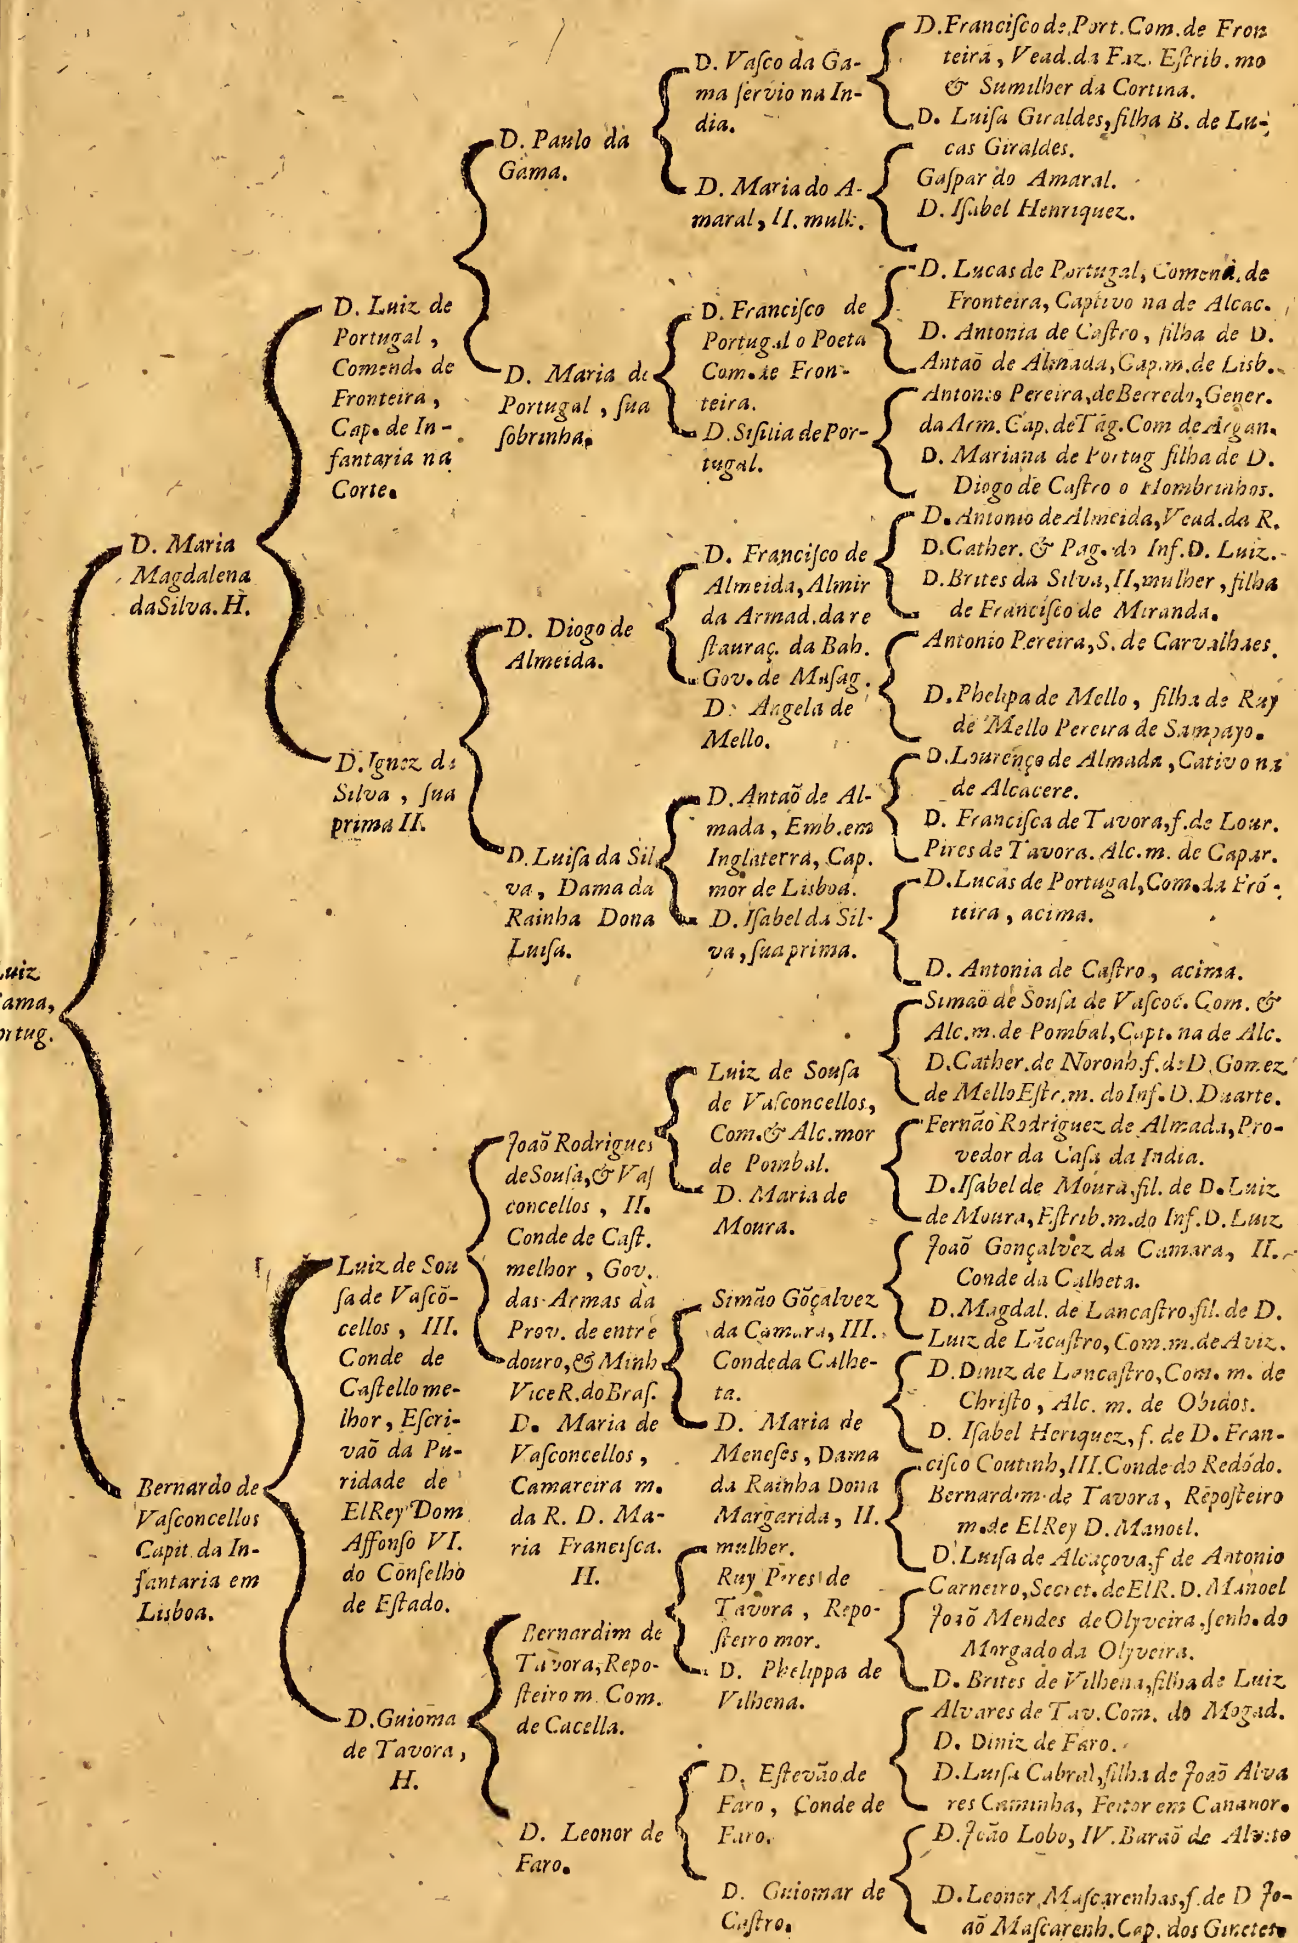 Luiz
ama,
ortug.
D. Maria
Magdalena
da Silva. H.
Bernardo de
Vaſconcellos
Capit. da In-
fantaria em
Lisboa.
D. Luiz de
Portugal,
Comend. de
Fronteira,
Cap. de In-
fantaria na
Corte.
D. Ignez da
Silva, ſua
prima II.
Luiz de Sou
ſa de Vaſcõ-
cellos, III.
Conde de
Caſtello me-
lhor, Eſcri-
vaõ da Pu-
ridade de
ElRey Dom
Affonſo VI.
do Conſelho
de Eſtado.
D. Guioma
de Tavora,
H.
D. Paulo da
Gama.
D. Maria de
Portugal, ſua
ſobrinha.
D. Diogo de
Almeida.
D. Luiſa da Sil
va, Dama da
Rainha Dona
Luiſa.
Joaõ Rodrigues
de Souſa, & Vaſ
concellos, II.
Conde de Caſt.
melhor, Gov.
das Armas da
Prov. de entre
douro, & Minh
Vice R. do Braſ.
D. Maria de
Vaſconcellos,
Camareira m.
da R. D. Ma-
ria Franciſca.
II.
Bernardim de
Tavora, Repo-
ſteiro m. Com.
de Cacella.
D. Leonor de
Faro.
D. Vaſco da Ga-
ma ſervio na In-
dia.
D. Maria do A-
maral, II. mulh.
D. Franciſco de
Portugal o Poeta
Com. de Fron-
teira.
D. Siſilia de Por-
tugal.
D. Franciſco de
Almeida, Almir
da Armad. da re
ſtauraç. da Bah.
Gov. de Maſag.
D. Angela de
Mello.
D. Antaõ de Al-
mada, Emb. em
Inglaterra, Cap.
mor de Lisboa.
D. Iſabel da Sil-
va, ſua prima.
Luiz de Souſa
de Vaſconcellos,
Com. & Alc. mor
de Pombal.
D. Maria de
Moura.
Simão Gõçalvez
da Camara, III.
Conde da Calhe-
ta.
D. Maria de
Meneſes, Dama
da Rainha Dona
Margarida, II.
mulher.
Ruy Pires de
Tavora, Repo-
ſteiro mor.
D. Phelippa de
Vilhena.
D. Eſtevão de
Faro, Conde de
Faro.
D. Guiomar de
Caſtro.
D. Franciſco de Port. Com. de Fron
teira, Vead. da Faz. Eſtrib. mo
& Sumilher da Cortina.
D. Luiſa Giraldes, filha B. de Lu-
cas Giraldes.
Gaſpar do Amaral.
D. Iſabel Henriquez.
D. Lucas de Portugal, Comend. de
Fronteira, Captivo na de Alcac.
D. Antonia de Caſtro, filha de D.
Antaõ de Almada, Cap. m. de Lisb.
Antonio Pereira, de Berredo, Gener.
da Arm. Cap. de Tãg. Com de Argan.
D. Mariana de Portug filha de D.
Diogo de Caſtro o Hombrinhos.
D. Antonio de Almeida, Vead. da R.
D. Cather. & Pag. do Inf. D. Luiz.
D. Brites da Silva, II, mulher, filha
de Franciſco de Miranda.
Antonio Pereira, S. de Carvalhaes.
D. Phelipa de Mello, filha de Ruy
de Mello Pereira de Sampayo.
D. Lourenço de Almada, Cativo na
de Alcacere.
D. Franciſca de Tavora, f. de Lour.
Pires de Tavora. Alc. m. de Capar.
D. Lucas de Portugal, Com. da Frõ-
teira, acima.
D. Antonia de Caſtro, acima.
Simaõ de Souſa de Vaſcoc. Com. &
Alc. m. de Pombal, Capt. na de Alc.
D. Cather. de Noronh. f. de D. Gomez
de Mello Eſtr. m. do Inf. D. Duarte.
Fernão Rodriguez de Almada, Pro-
vedor da Caſa da India.
D. Iſabel de Moura, fil. de D. Luiz
de Moura, Eſtrib. m. do Inf. D. Luiz
Joaõ Gonçalvez da Camara, II.
Conde da Calheta.
D. Magdal. de Lancaſtro, fil. de D.
Luiz de Lãcaſtro, Com. m. de Aviz.
D. Diniz de Lancaſtro, Com. m. de
Chriſto, Alc. m. de Obidos.
D. Iſabel Heriquez, f. de D. Fran-
ciſco Coutinh, III. Conde do Redõdo.
Bernardim de Tavora, Repoſteiro
m. de ElRey D. Manoel.
D. Luiſa de Alcaçova, f de Antonio
Carneiro, Secret. de ElR. D. Manoel
Joaõ Mendes de Olyveira, ſenh. do
Morgado da Olyveira.
D. Brites de Vilhena, filha de Luiz
Alvares de Tav. Com. do Mogad.
D. Diniz de Faro.
D. Luiſa Cabral, filha de Joaõ Alva
res Caminha, Feitor em Cananor.
D. João Lobo, IV. Baraõ de Alvito
D. Leonor Maſcarenhas, f. de D Jo-
aõ Maſcarenh. Cap. dos Ginetes.